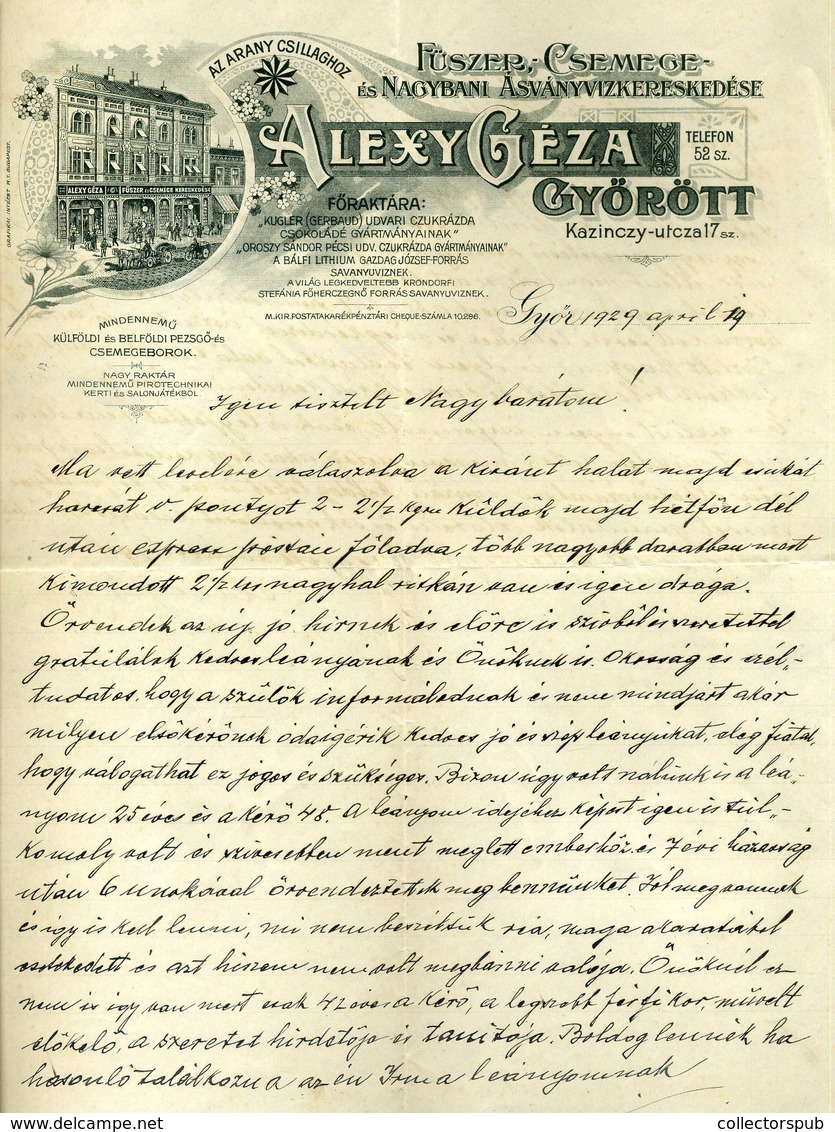 AZ ARANY CSILLAGHOZ
FŰSZER,- CSEMEGE-
ÉS NAGYBANI ÁSVÁNYVIZKERESKEDÉSE
ALEXY GÉZA
TELEFON
52 SZ.
GYŐRÖTT
Kazinczy-utcza 17 sz.
ALEXY GÉZA FŰSZER ÉS CSEMEGE KERESKEDÉSE
GRAFIKAI INTÉZET R.T. BUDAPEST.
FŐRAKTÁRA:
„KUGLER (GERBAUD) UDVARI CZUKRÁZDA
CSOKOLÁDÉ GYÁRTMÁNYAINAK"
„OROSZY SÁNDOR PÉCSI UDV. CZUKRÁZDA GYÁRTMÁNYAINAK"
A BÁLFI LITHIUM GAZDAG JÓZSEF-FORRÁS
SAVANYUVIZNEK.
A VILÁG LEGKEDVELTEBB KRONDORFI
STEFÁNIA FŐHERCZEGNŐ FORRÁS SAVANYUVIZNEK.
M.KIR. POSTATAKARÉKPÉNZTÁRI CHEQUE-SZÁMLA 10.296.
MINDENNEMŰ
KÜLFÖLDI ÉS BELFÖLDI PEZSGŐ-ÉS
CSEMEGEBOROK.
NAGY RAKTÁR
MINDENNEMŰ PIROTECHNIKAI
KERTI ÉS SALONJÁTÉKBOL.
Győr 1929 april 19
Igen tisztelt Nagybarátom!
Ma vett levelére válaszolva a kivánt halat majd csukát
harcsát v. pontyot 2 – 2 1/2 kgru küldök majd hétfőn dél
után express postán föladva, több nagyobb darabban mert
kimondott 2 1/2 nagy hal ritkán van és igen drága.
Örvendek az új jó hirnek és előre is szivből és szeretettel
gratulálok kedves leányának és Önöknek is. Okosság és czél-
tudatos, hogy a szülők informálodnak és nem mindjárt akár
milyen elsőkérőnek odaigérik kedves jó és szép leányukat, elég fiatal,
hogy válogathat ez jogos és szükséges. Bizon úgy volt nálunk is a leá-
nyom 25 éves és a kérő 48. A leányom idejéhez képest igen is túl-
komoly volt és szivesebben ment meglett emberhöz és 7 évi házasság
után 6 unokával örvendeztettek meg bennünket. Jól megvannak
és így is kell lenni, mi nem beszéltük reá, maga akaratából
cselekedett és azt hiszem nem volt megbánni valója. Önöknél ez
nem is így van mert csak 42 éves a kérő, a legszebb férfikor, művelt
előkelő, a szeretet hirdetője is tanitója. Boldog lennék ha
hasonló találkozna az én Irma leányomnak
collectorspub